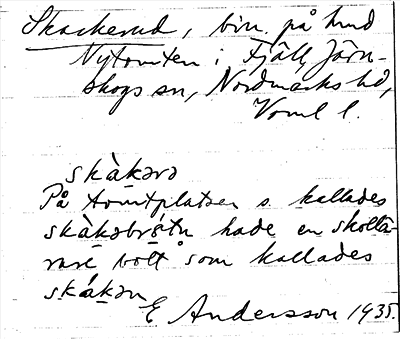 Skackerud, binn. på hmd
Nytomten i Fjäll, Järn-
skogs sn, Nordmarks hd,
Vrml l.
skàkərə
På tomtplatsen s. kallades
skàkəbrǿtn hade en skottä-
rare bott som kallades
skákən
E Andersson 1935.